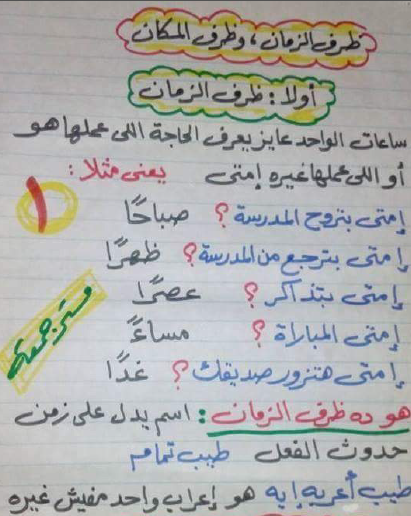 ظرف الزمان، وظرف المكان
أولا: ظرف الزمان
ساعات الواحد عايز يعرف الحاجة اللى عملها هو
أو اللى عملها غيره إمتى يعنى مثلا:
١
إمتى بتروح المدرسة؟ صباحًا
إمتى بترجع من المدرسة؟ ظهرًا
إمتى بتذاكر؟ عصرًا
إمتى المباراة؟ مساءً
إمتى هتزور صديقك؟ غدًا
مستر جمعة
هو ده ظرف الزمان: اسم يدل على زمن
حدوث الفعل طيب تمام
طيب أعربه إيه هو إعراب واحد مفيش غيره